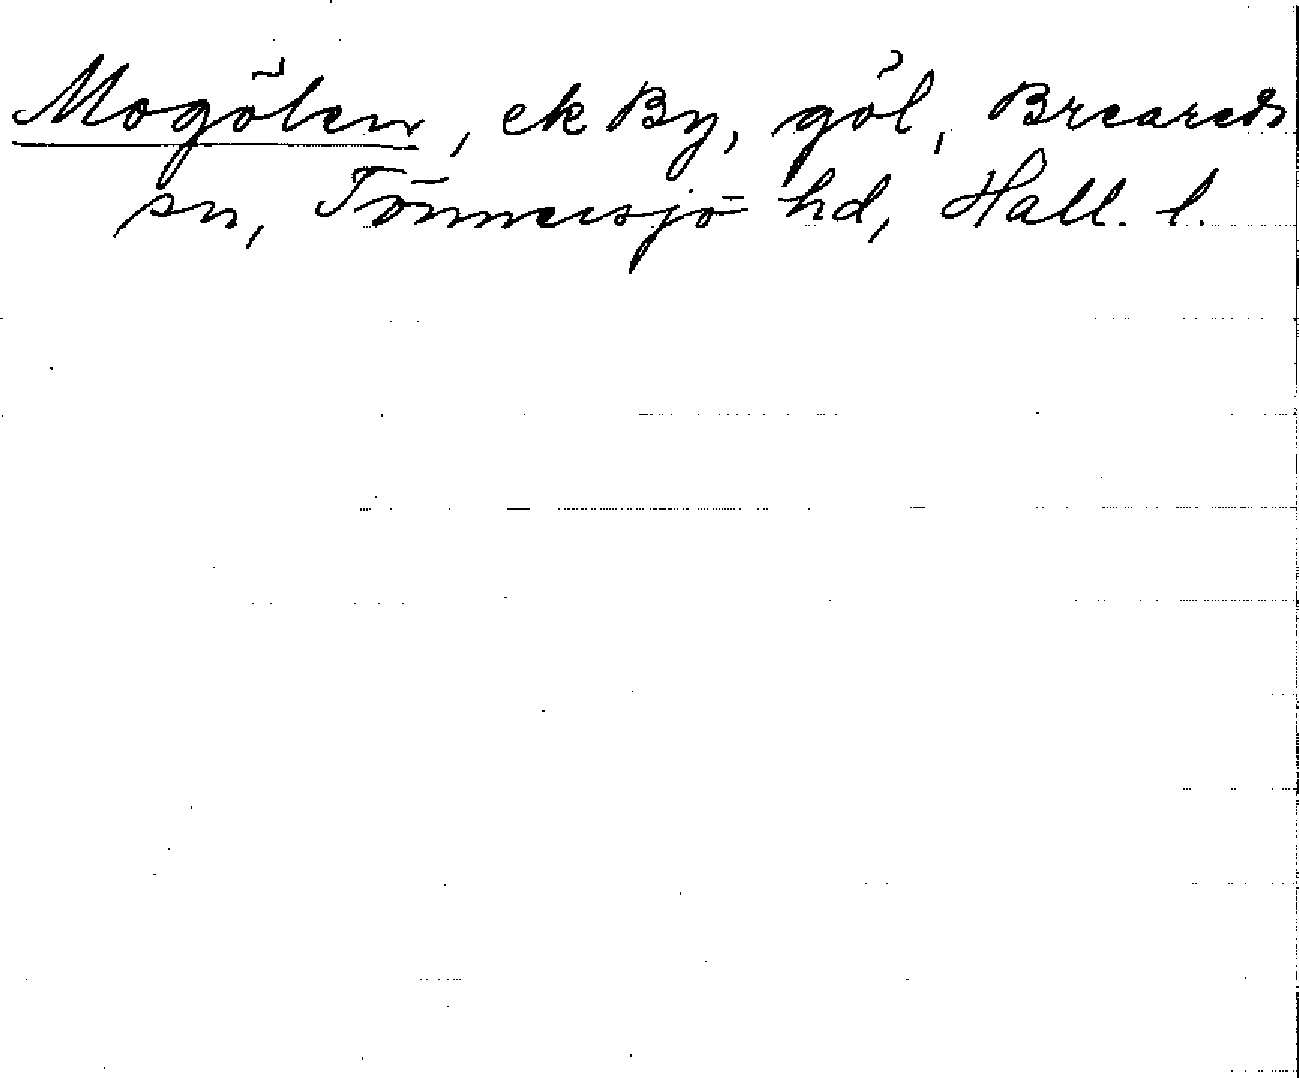 Mogölen, ek By, göl, Breareds
sn, Tönnersjö hd, Hall. l.